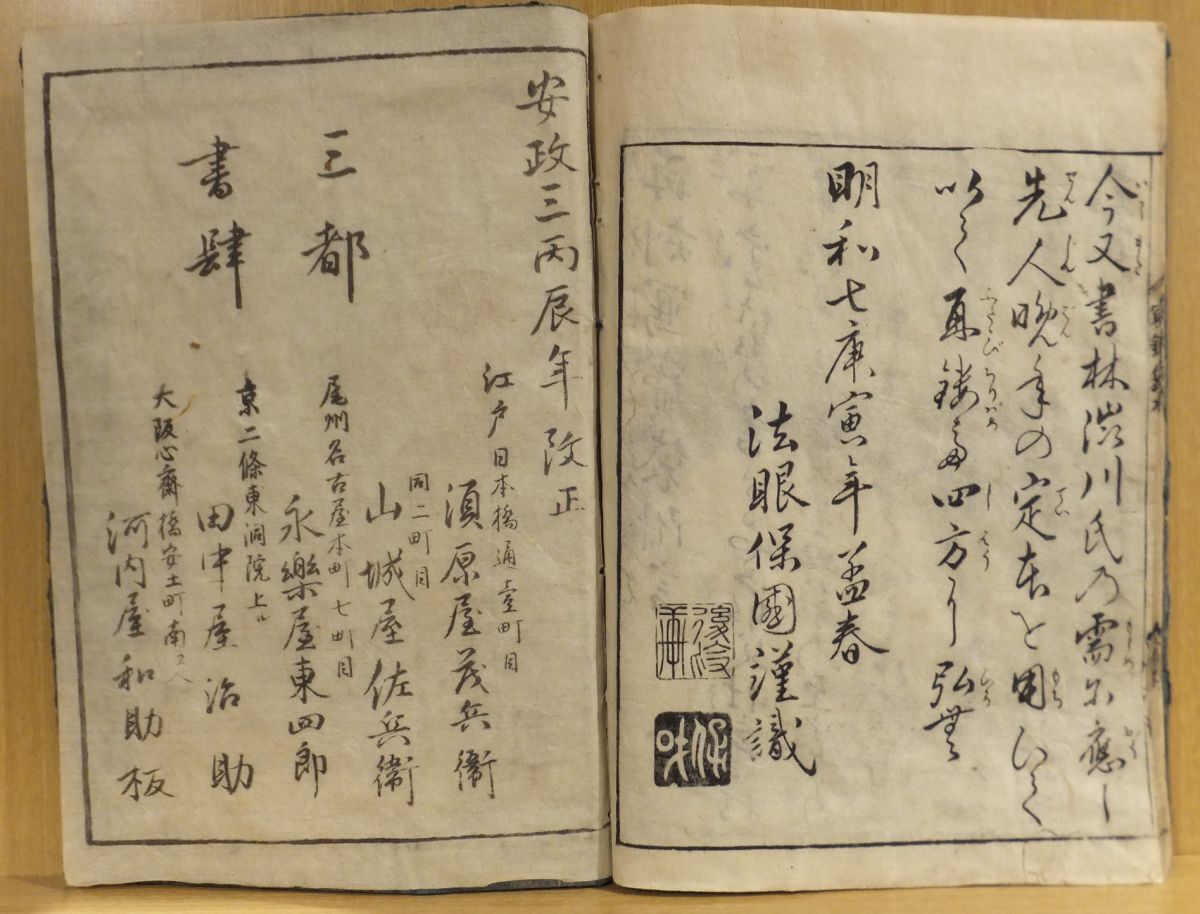 今又書林澁川氏の需に應し
先人晩年の定本を用ひて
以て再鏤して四方に弘む
明和七庚寅年孟春
法眼保國謹識
安政三丙辰年改正
三都
書肆
江戸日本橋通壹町目
須原屋茂兵衛
同二町目
山城屋佐兵衛
尾州名古屋本町七町目
永樂屋東四郎
京二條東洞院上ル
田中屋治助
大阪心齋橋安土町南ヘ入
河内屋和助板